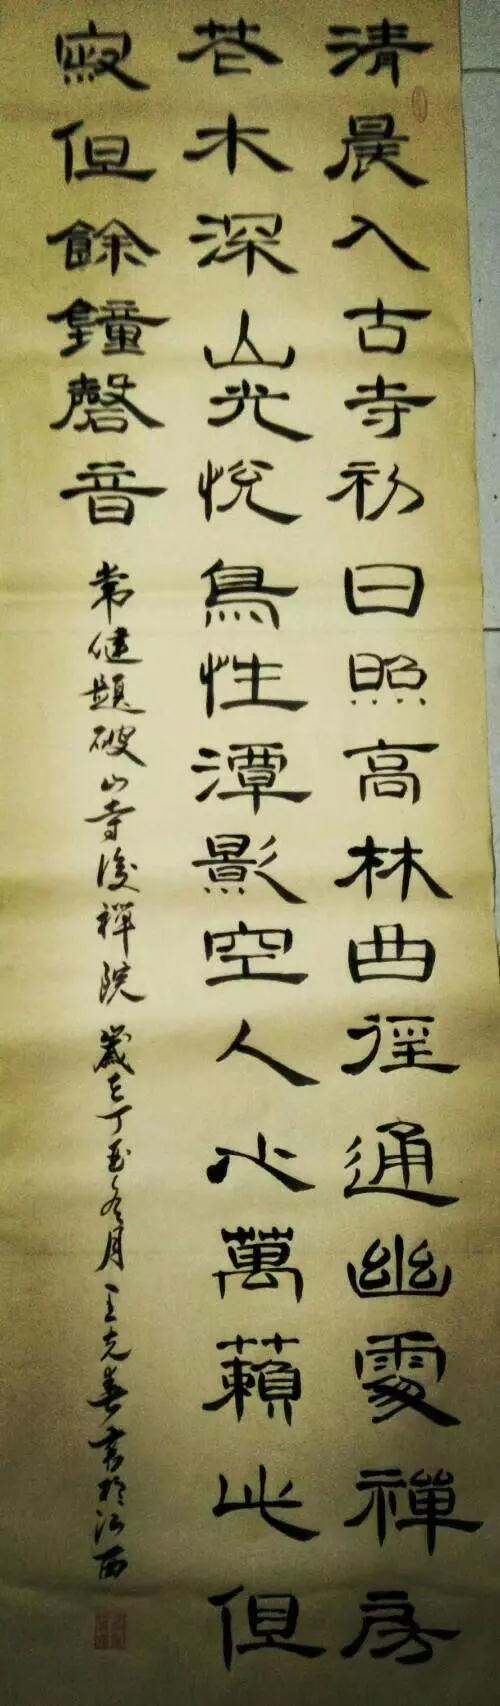 清晨入古寺初日照高林曲徑通幽處禪房
花木深山光悅鳥性潭影空人心萬籟此但
寂但餘鐘磬音 常健題破山寺後禪院 歲在丁酉冬月 王克春書於江西